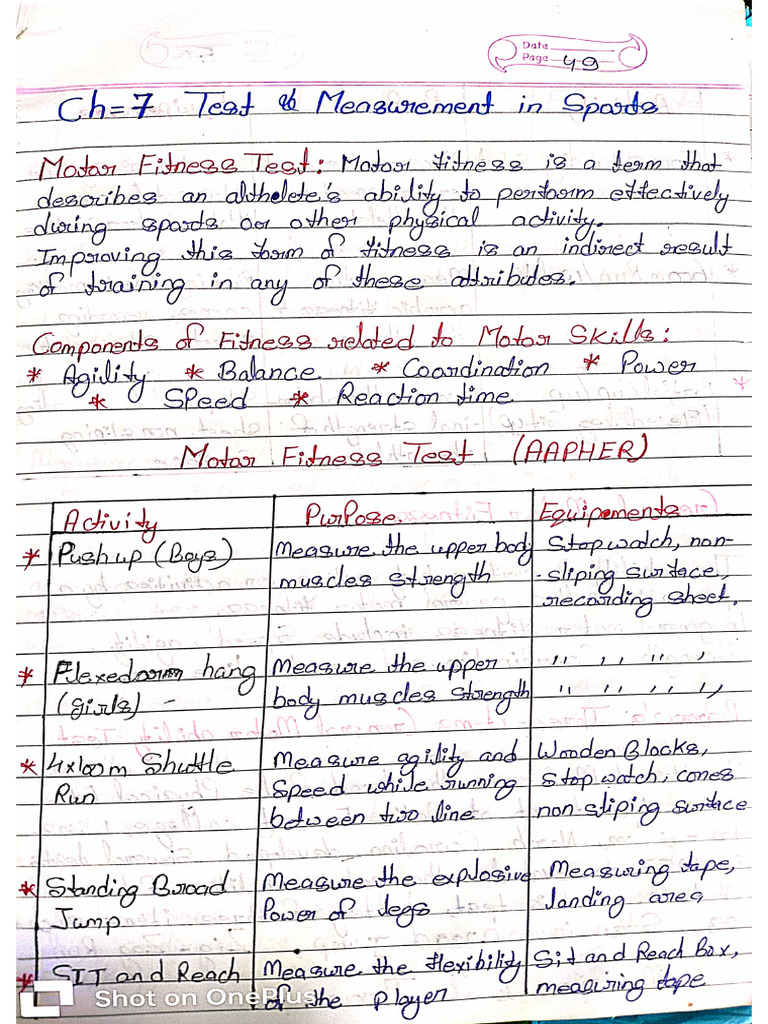 Date
Page 49
Ch=7 Test & Measurement in Sports
Motor Fitness Test: Motor fitness is a term that
describes an althelete's ability to perform effectively
during sports or other physical activity.
Improving this form of fitness is an indirect result
of training in any of these attributes.
Components of Fitness related to Motor Skills:
* Agility * Balance * Coordination * Power
* Speed * Reaction time
Motor Fitness Test (AAPHER)
Activity Purpose Equipements
* Push up (Boys) Measure the upper body Stop watch, non-
muscles strength -sliping surface,
recording sheet.
* Flexed arm hang Measure the upper ,, ,, ,, ,
(girls) - body muscles strength ,, ,, ,, ,,
* 4x100m Shuttle Measure agility and Wooden Blocks,
Run Speed while running Stop watch, cones
between two line non-sliping surface
* Standing Broad Measure the explosive Measuring tape,
Jump Power of legs landing area
* SIT and Reach Measure the flexibility Sit and Reach Box,
of the player measuring tape
Shot on OnePlus